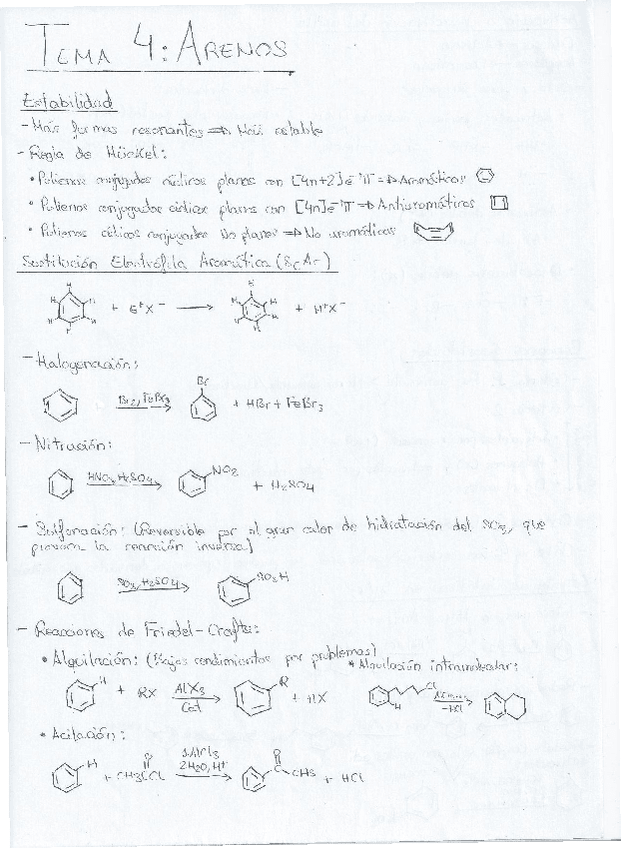 TEMA 4: ARENOS
Estabilidad
- Más formas resonantes ⇒ Más estable
- Regla de Hückel:
• Polienos conjugados cíclicos planos con [4n+2]e⁻π ⇒ Aromáticos
• Polienos conjugados cíclicos planos con [4n]e⁻π ⇒ Antiaromáticos
• Polienos cíclicos conjugados No planos ⇒ No aromáticos
Sustitución Electrófila Aromática (SEAr)
H H H H H H + E⁺X⁻ → E H H H H H + H⁺X⁻
- Halogenación:
Br2, FeBr3 → Br + HBr + FeBr3
- Nitración:
HNO3, H2SO4 → NO2 + H2SO4
- Sulfonación: (Reversible por el gran calor de hidratación del SO3, que
provoca la reacción inversa)
SO3, H2SO4 → SO3H
- Reacciones de Friedel-Crafts:
• Alquilación: (Bajos rendimientos por problemas)
* Alquilación intramolecular:
H + RX AlX3 Cat → R + HX
Cl H -HCl →
• Acilación:
H + CH3CCl O 1.AlCl3 2.H2O, H⁺ → O C CH3 + HCl